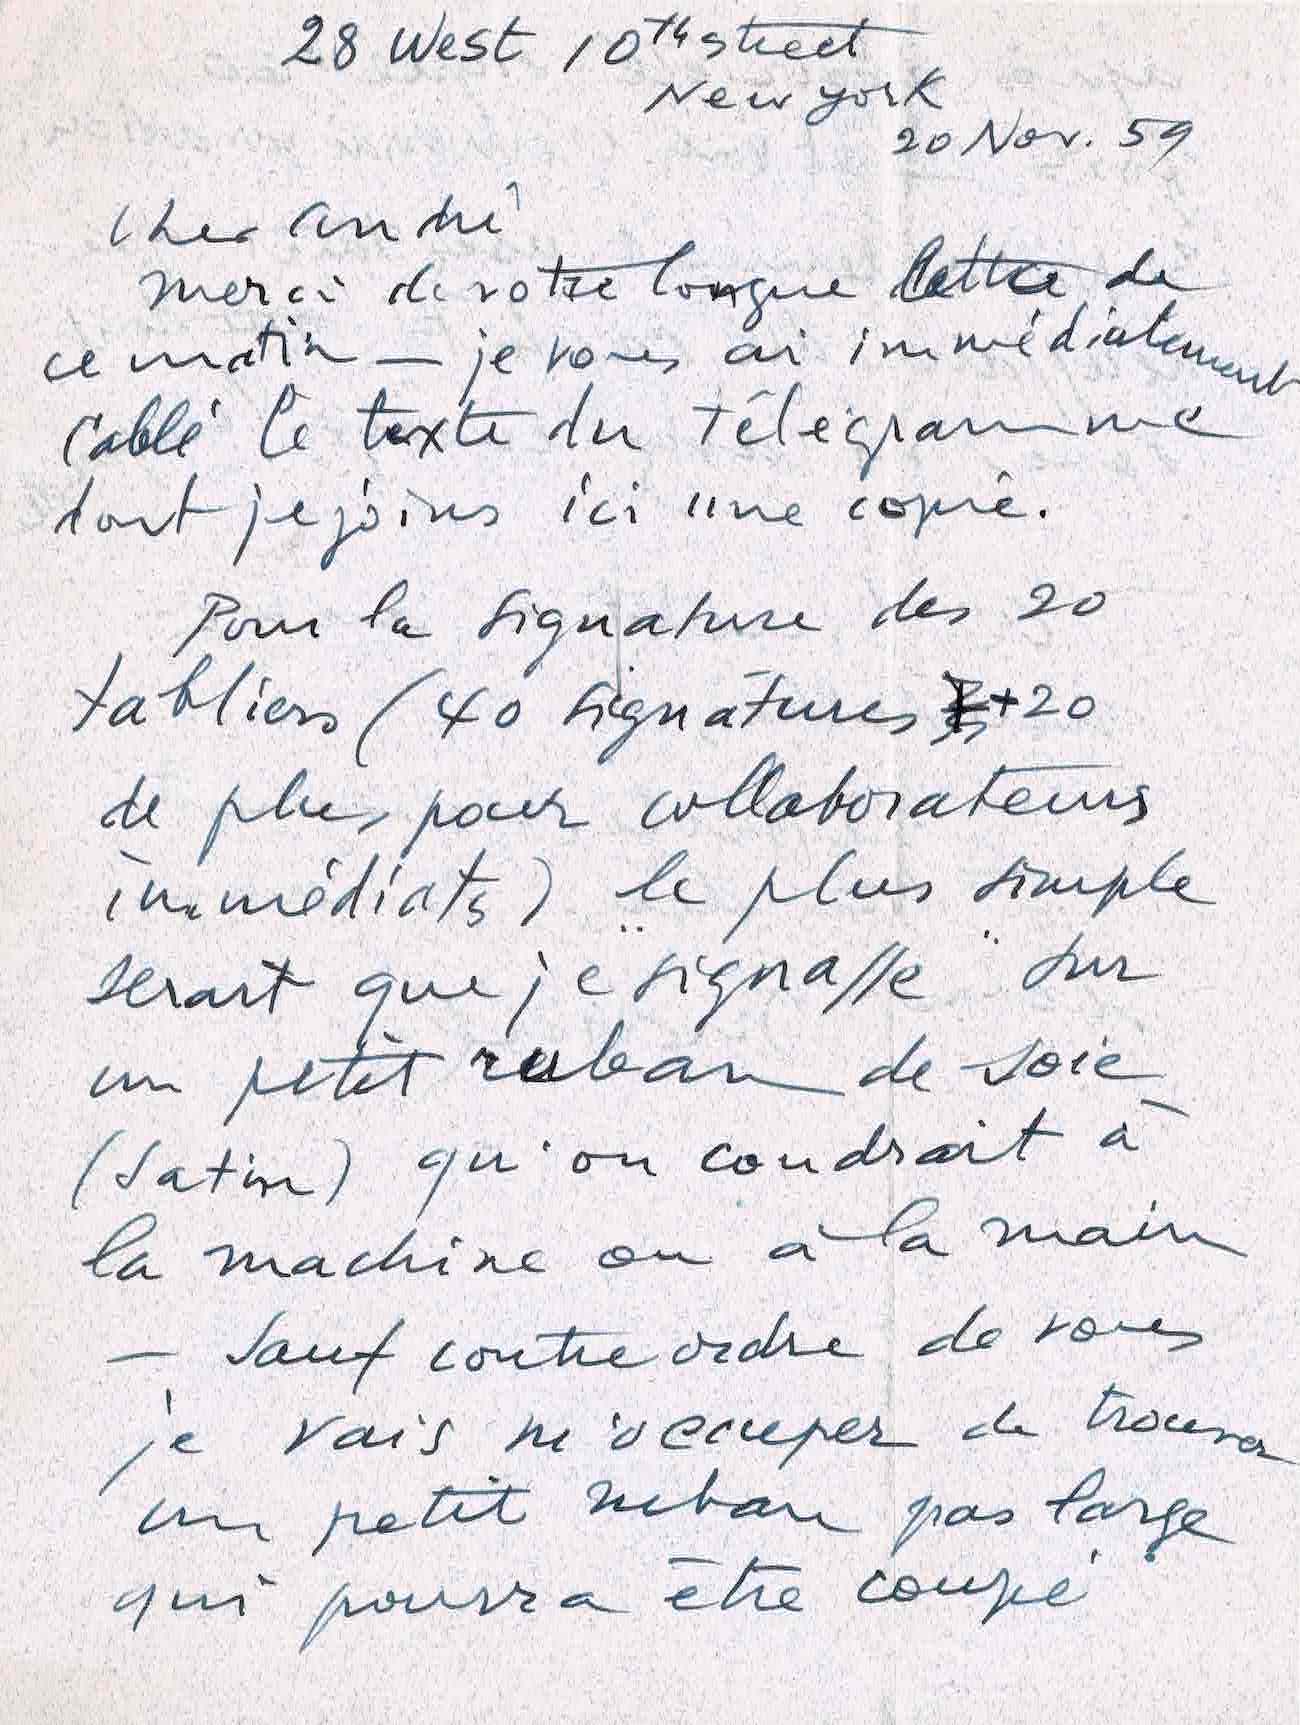 28 West 10th street
New York
20 Nov. 59
Cher André
Merci de votre longue lettre de
ce matin — je vous ai immédiatement
cablé le texte du télégramme
dont je joins ici une copie.
Pour la signature des 20
tabliers (40 signatures +20
de plus pour collaborateurs
immédiats) le plus simple
serait que je "signasse" sur
un petit ruban de soie
(satin) qu'on coudrait à
la machine ou à la main
— Sauf contre ordre de vous
je vais m'occuper de trouver
un petit ruban pas large
qui pourra être coupé